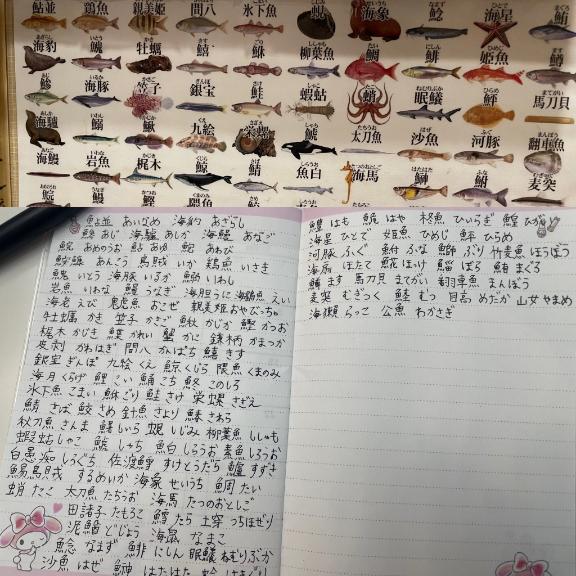 鮎並 鶏魚 親美姫 間八 氷下魚 海象 鯰 海星 鮪
海豹 鯢 牡蠣 鱚 鮴 柳葉魚 鯛 鯡 姫魚 鱒
鯵 海豚 笠子 銀宝 鮭 蝦蛄 蛸 眠鱶 鮃 馬刀貝
海驢 鰯 鰍 九絵 栄螺 鯱 太刀魚 沙魚 河豚 翻車魚
海鰻 岩魚 梶木 鯨 鯖 魚白 海馬 鰰 鮒 麦突
鰻 鰹
鮎並 あいなめ 海豹 あざらし
鯵 あじ 海驢 あしか 海鰻 あなご
鯇 あめのうお 鮎 あゆ 鮑 あわび
鮟鱇 あんこう 烏賊 いか 鶏魚 いさき
いとう 海豚 いるか 鰯 いわし
岩魚 いわな 鰻 うなぎ 海胆 うに 海鷂魚 えい
海老 えび 鬼虎魚 おこぜ 親美姫 おやびっちゃ
牡蠣 かき 笠子 かさご 鰍 かじか 鰹 かつお
梶木 かじき 鰈 かれい 蟹 かに 鎌柄 かまつか
皮剥 かわはぎ 間八 かんぱち 鱚 きす
銀宝 ぎんぽ 九絵 くえ 鯨 くじら 隈魚 くまのみ
海月 くらげ 鯉 こい 鯒 こち このしろ
氷下魚 こまい 鮴 ごり 鮭 さけ 栄螺 さざえ
鯖 さば 鮫 さめ 針魚 さより 鰆 さわら
秋刀魚 さんま 鱰 しいら 蜆 しじみ 柳葉魚 ししゃも
蝦蛄 しゃこ 鯱 しゃち 魚白 しらうお 素魚 しろうお
白愚痴 しろぐち 佐渡鱈 すけとうだら 鱸 すずき
鯣烏賊 するめいか 海象 せいうち 鯛 たい
蛸 たこ 太刀魚 たちうお 海馬 たつのおとしご
田諸子 たもろこ 鱈 たら 土穿 つちほぜり
泥鰌 どじょう 海鼠 なまこ
鯰 なまず 鯡 にしん 眠鱶 ねむりぶか
沙魚 はぜ 鰰 はたはた 蛤 はまぐり
鱧 はも 鮠 はや 柊魚 ひいらぎ 鰉 ひがい
海星 ひとで 姫魚 ひめじ 鮃 ひらめ
河豚 ふぐ 鮒 ふな 鰤 ぶり 竹麦魚 ほうぼう
海扇 ほたて 𩸽 ほっけ 鰡 ぼら 鮪 まぐろ
鱒 ます 馬刀貝 まてがい 翻車魚 まんぼう
麦突 むぎつく 鯥 むつ 目高 めだか 山女 やまめ
海獺 らっこ 公魚 わかさぎ